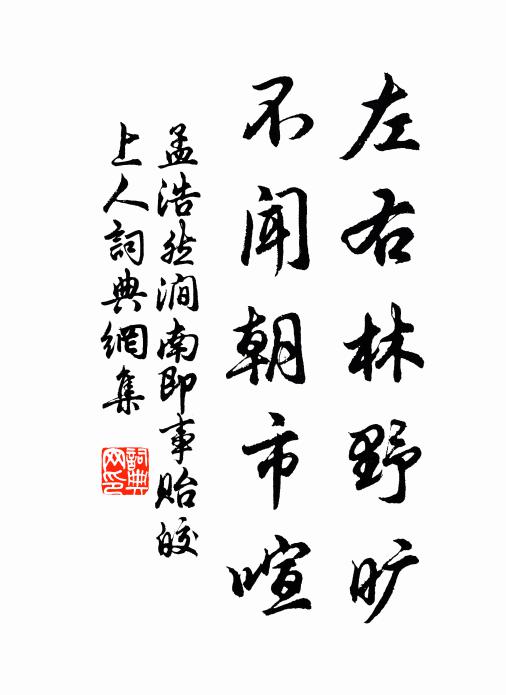 左右林野旷
不闻朝市喧
孟浩然涧南即事贻皎
上人詞典網集
詞典网印